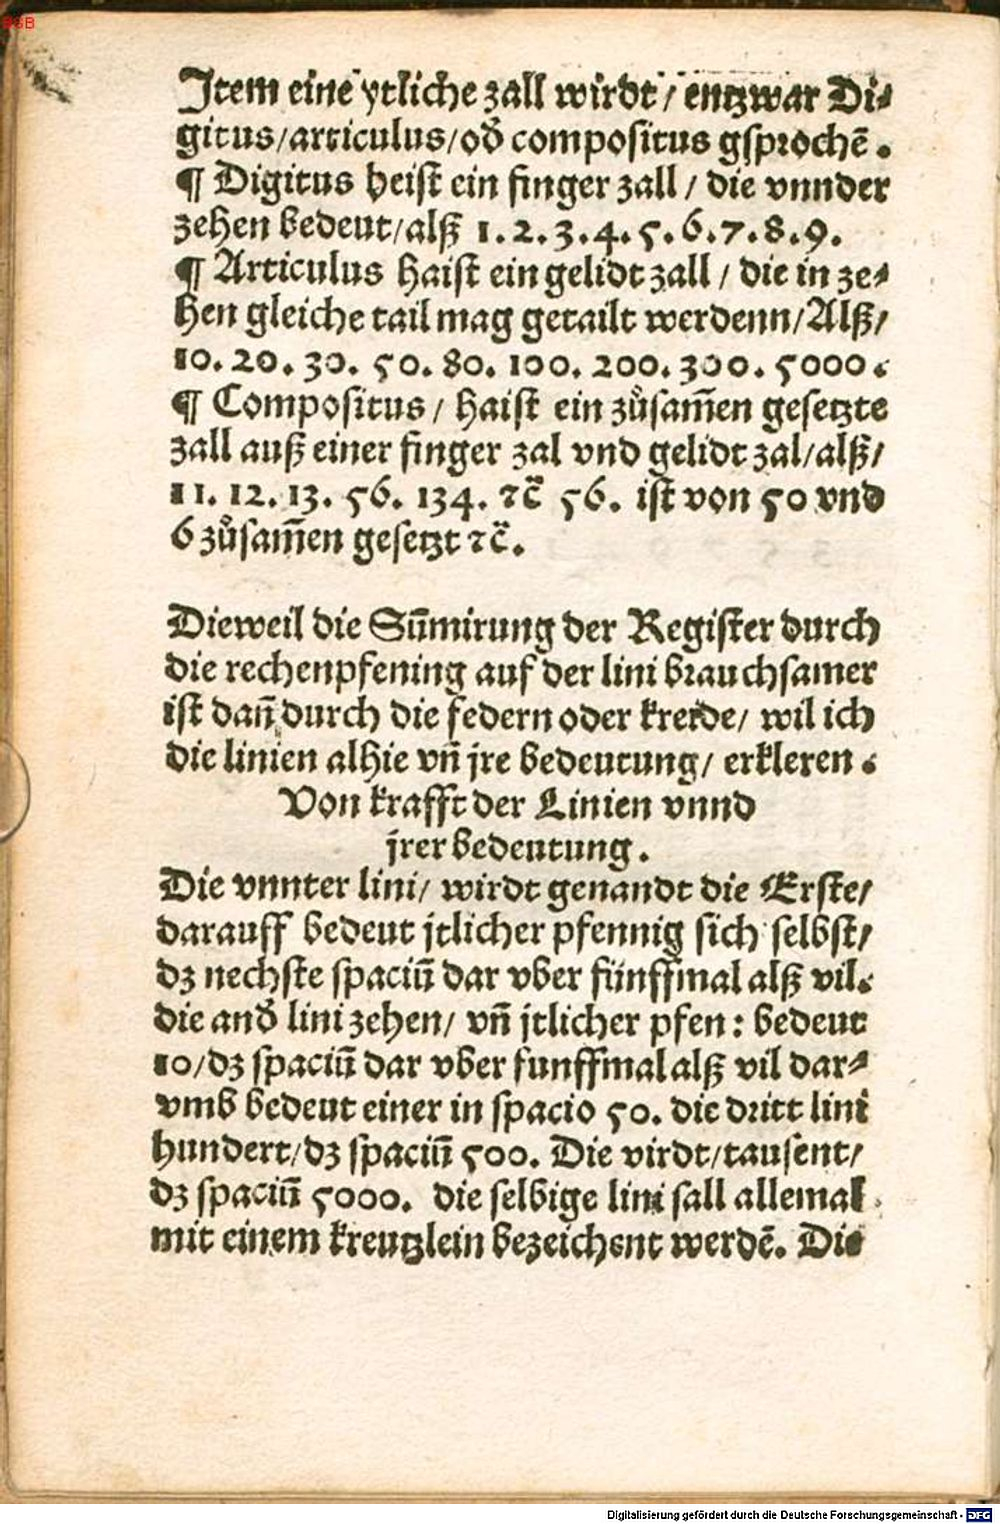 BSB
Jtem eine ytliche zall wirdt / entzwar Di⸗
gitus/articulus/oď compositus gsprochē.
¶ Digitus heist ein finger zall / die vnnder
zehen bedeut/alß 1.2.3.4.5.6.7.8.9.
¶ Articulus haist ein gelidt zall / die in ze⸗
hen gleiche tail mag getailt werdenn/Alß/
10.20.30.50.80.100.200.300.5000.
¶ Compositus / haist ein zůsam̄en gesetzte
zall auß einer finger zal vnd gelidt zal/alß/
11.12.13.56.134. ⁊c̄ 56. ist von 50 vnd
6 zůsam̄en gesetzt ⁊c̄.
Dieweil die Sum̄irung der Register durch
die rechenpfening auf der lini brauchsamer
ist dan̄ durch die federn oder kreide/ wil ich
die linien alhie vn̄ jre bedeutung/ erkleren.
Von krafft der Linien vnnd
jrer bedeutung.
Die vnnter lini/ wirdt genandt die Erste/
darauff bedeut jtlicher pfennig sich selbst/
dz nechste spaciū dar vber fünffmal alß vil.
die anď lini zehen/ vn̄ jtlicher pfen: bedeut
10/dz spaciū dar vber funffmal alß vil dar⸗
vmb bedeut einer in spacio 50. die dritt lini
hundert/dz spaciū 500. Die virdt/tausent/
dz spaciū 5000. die selbige lini sall allemal
mit einem kreutzlein bezeichent werdē. Die
Digitalisierung gefördert durch die Deutsche Forschungsgemeinschaft - DFG